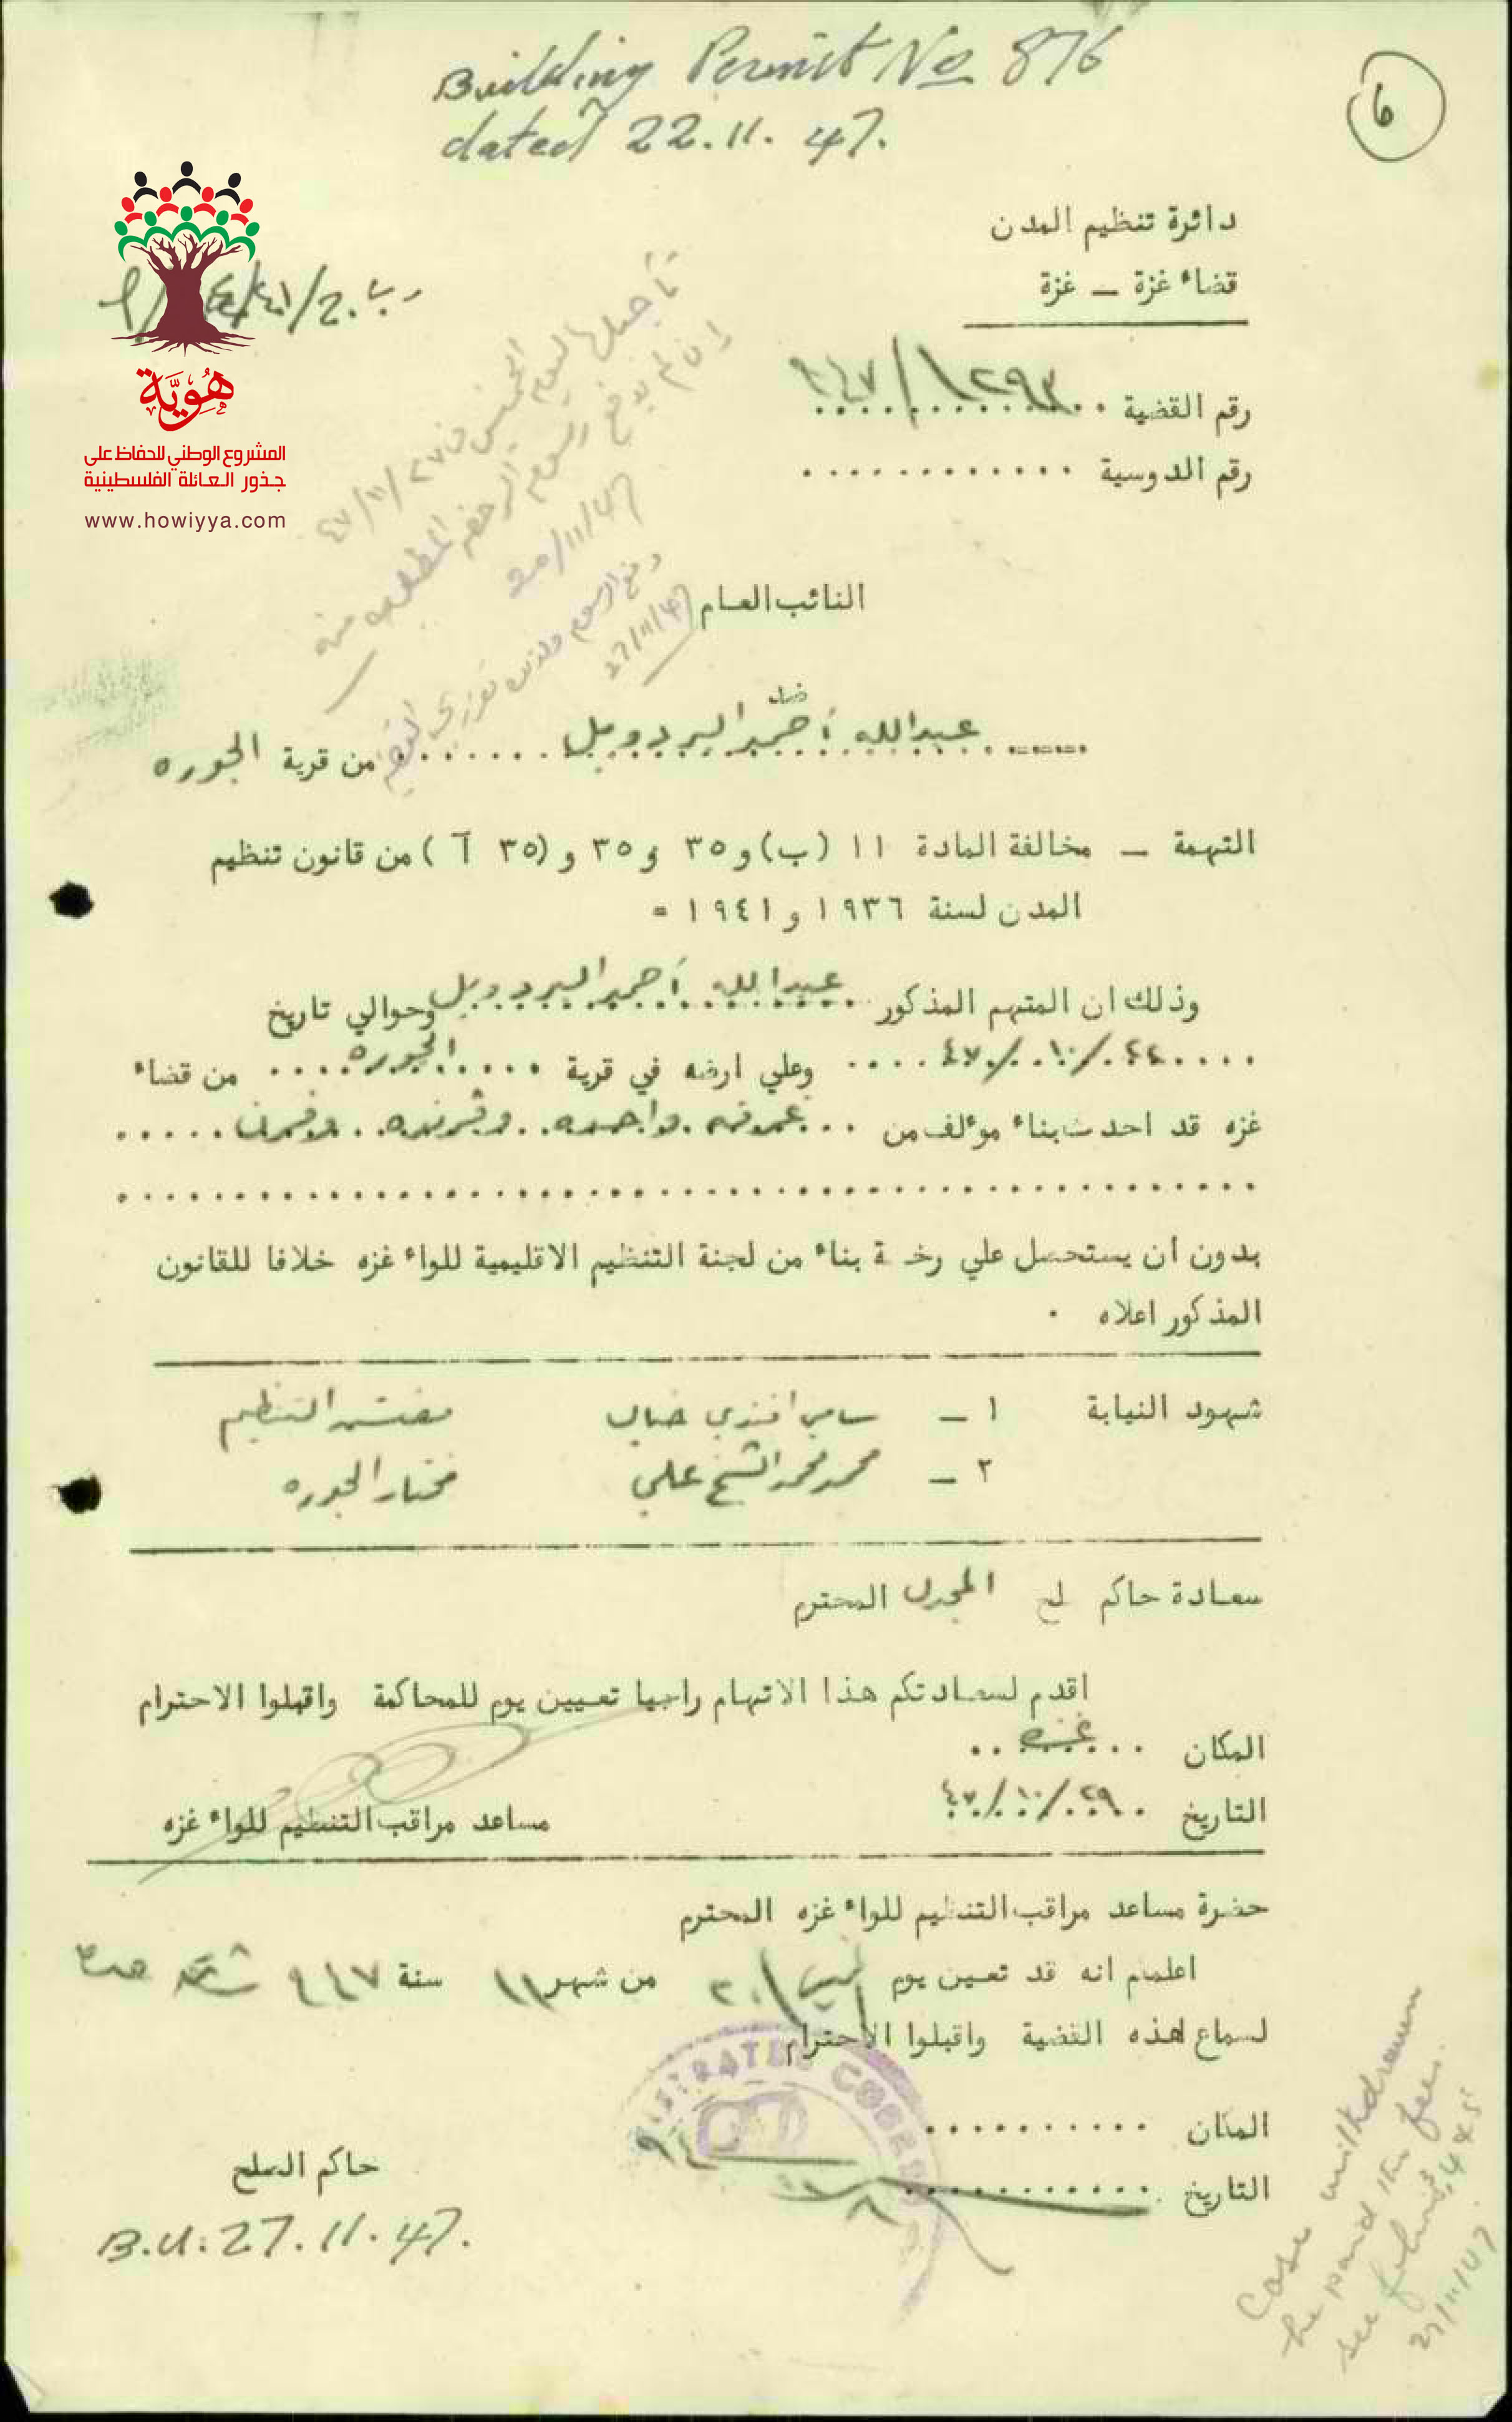 Building Permit No 876
dated 22.11.47.
6
دائرة تنظيم المدن
قضاء غزة — غزة
هُويَّة
المشروع الوطني للحفاظ على
جذور العائلة الفلسطينية
www.howiyya.com
رقم القضية ١٢٩٣/٩٤٧
رقم الدوسية ............
تأجيلها ليوم الخميس في ٤٧/١١/٢٧
إن لم يدفع رسوم الرخصة المطلوب منه
20/11/47
27/11/47
النائب العام
ضد
عبدالله أحمد البردويل من قرية الجوره
التهمة — مخالفة المادة ١١ (ب) و ٣٥ و ٣٥ و (٣٥ آ) من قانون تنظيم
المدن لسنة ١٩٣٦ و ١٩٤١ =
وذلك ان المتهم المذكور عبدالله أحمد البردويل وحوالي تاريخ
٤٧/١٠/٢٤ وعلي ارضه في قرية الجوره من قضاء
غزه قد احدث بناء مؤلف من غرفه واحده وفرنده وفرن
بدون أن يستحصل علي رخـ ة بناء من لجنة التنظيم الاقليمية للواء غزه خلافا للقانون
المذكور اعلاه .
شهود النيابة ١ — سامي افندي مفتش التنظيم
٢ — محمد محمد الشيخ علي مختار الجوره
سعادة حاكم لح المجدل المحترم
اقدم لسعادتكم هذا الاتهام راجيا تعيين يوم للمحاكمة واقبلوا الاحترام
المكان غزه
التاريخ ٤٧/١٠/٢٩
مساعد مراقب التنظيم للواء غزه
حضرة مساعد مراقب التنظيم للواء غزه المحترم
اعلمكم انه قد تعين يوم ٢٠ من شهر ١١ سنة ٩٤٧
لسماع هذه القضية واقبلوا الاحترام
المكان ...........
التاريخ ...........
حاكم الصلح
B.U: 27.11.47.
Case withdrawn
he paid the fees.
see
27/11/47